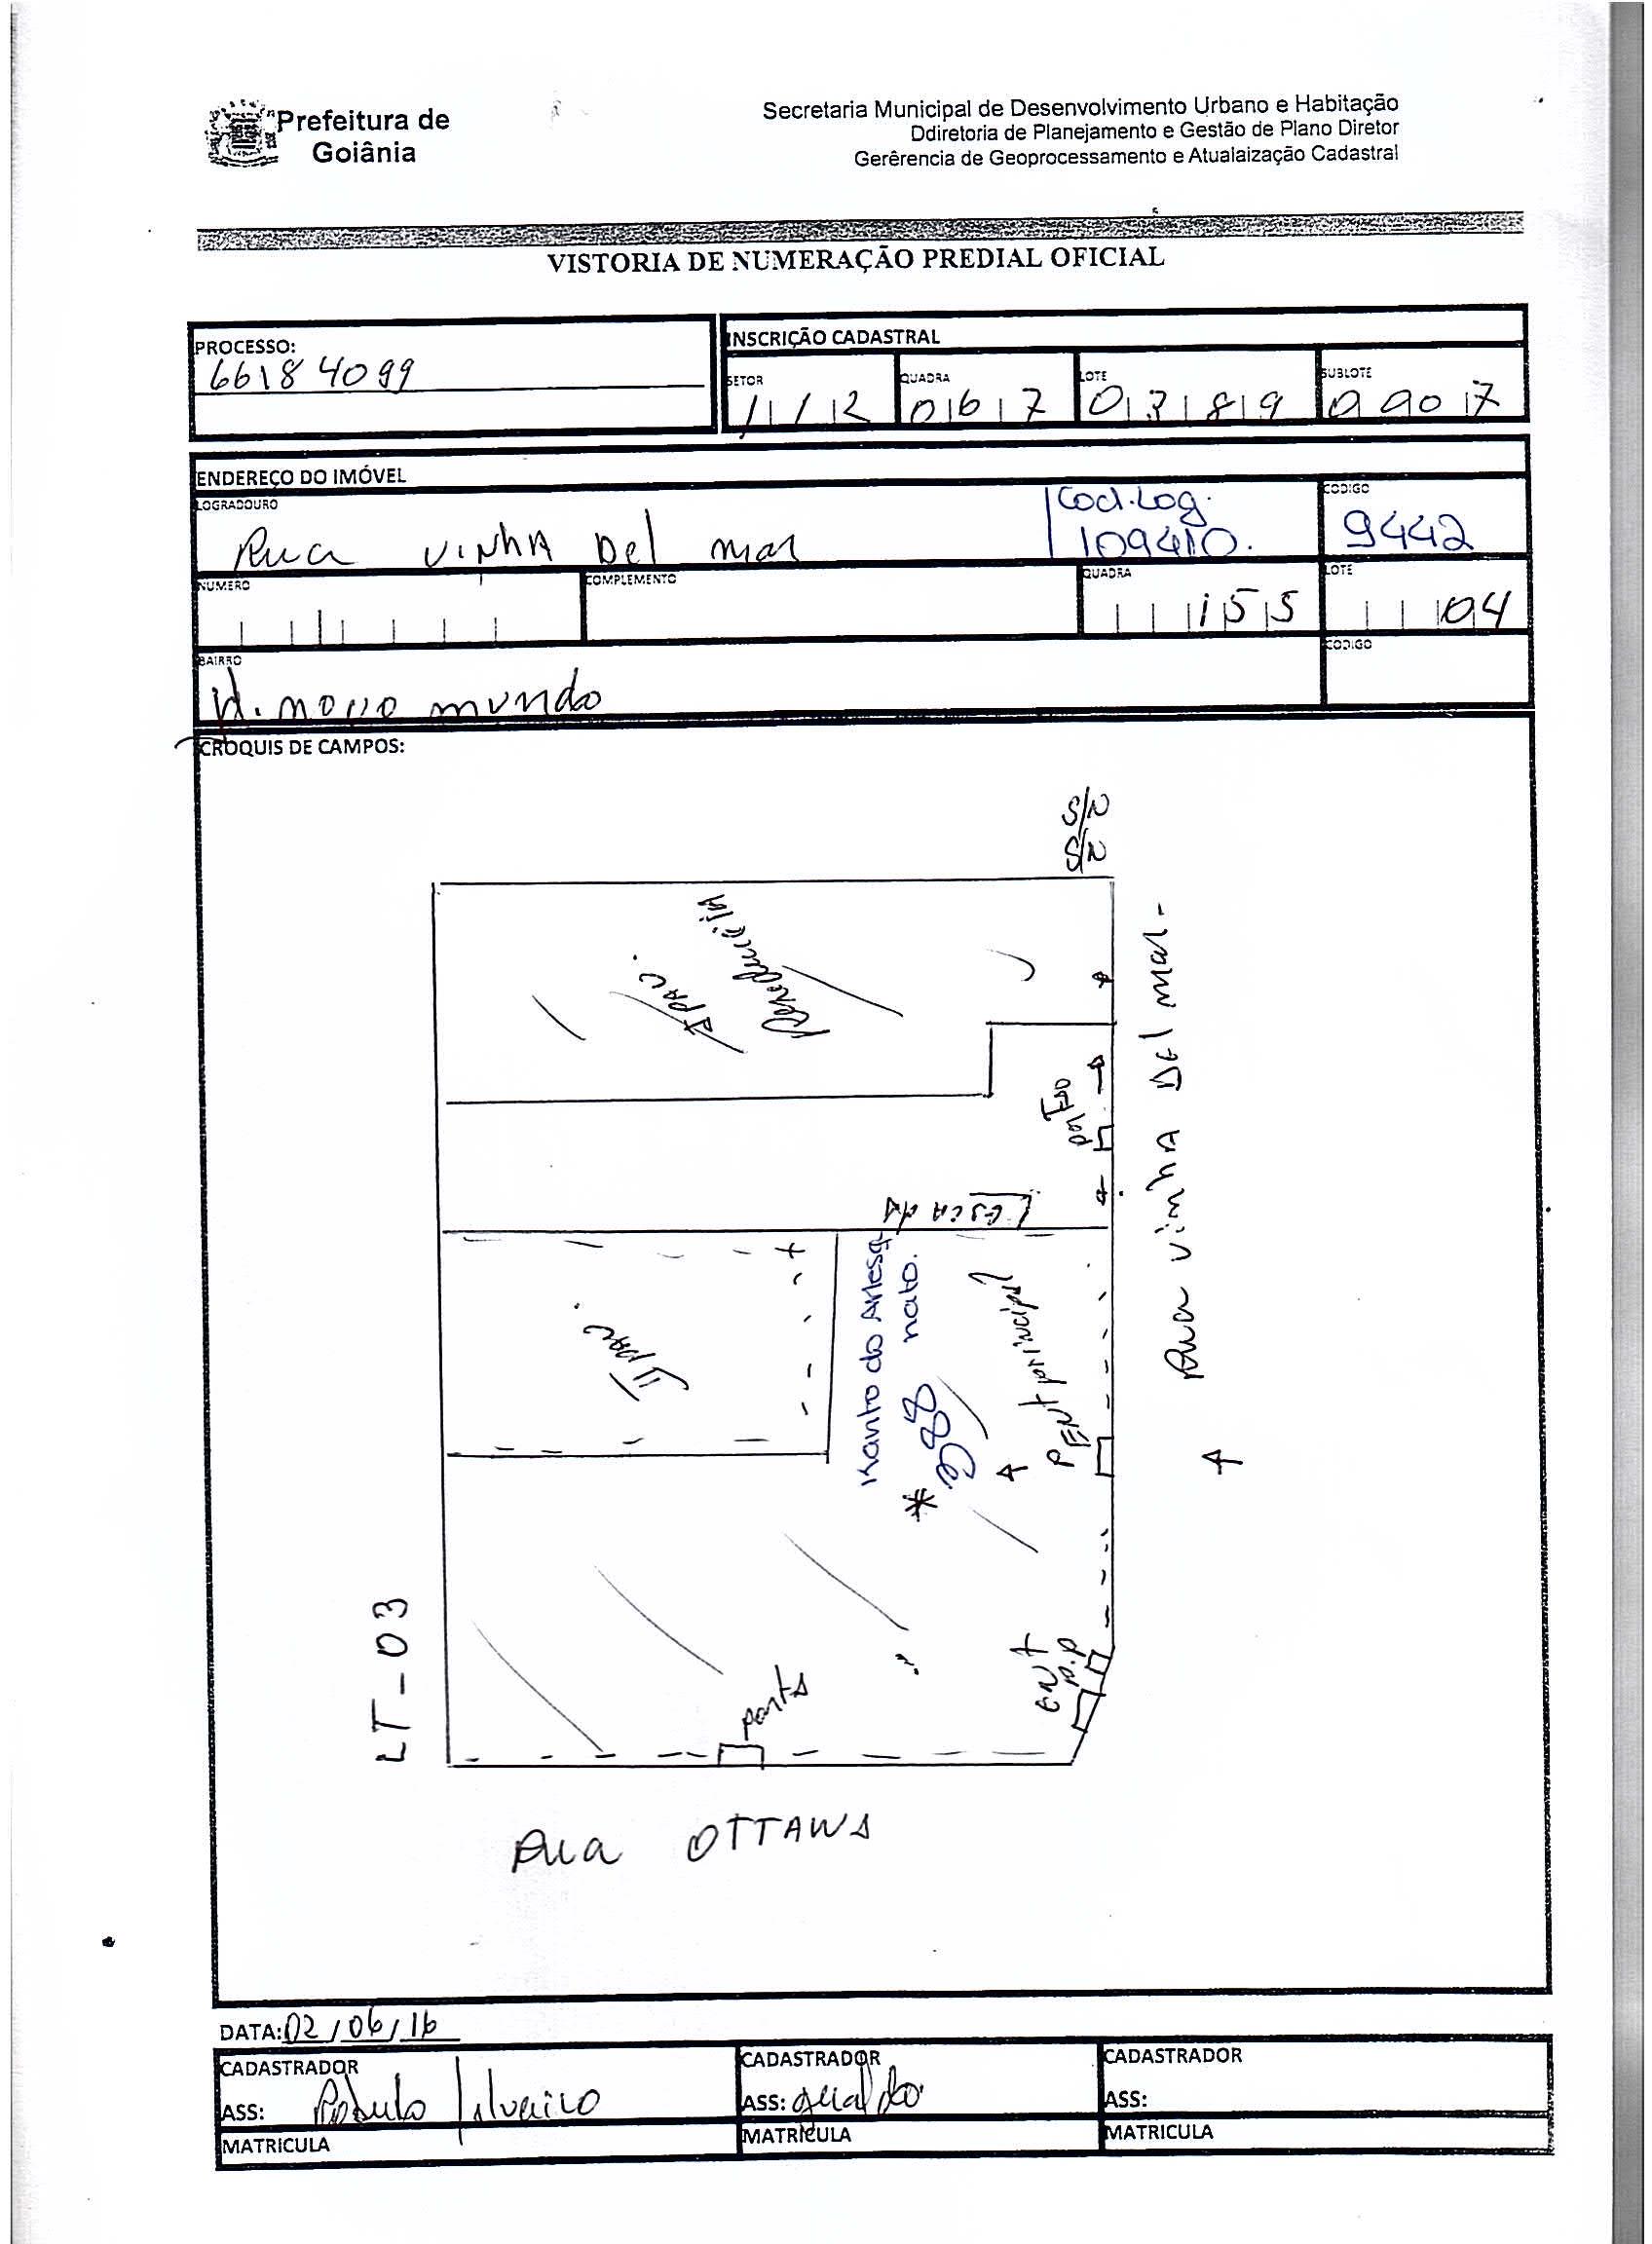 Prefeitura de
Goiânia
Secretaria Municipal de Desenvolvimento Urbano e Habitação
Ddiretoria de Planejamento e Gestão de Plano Diretor
Gerêrencia de Geoprocessamento e Atualaização Cadastral
VISTORIA DE NUMERAÇÃO PREDIAL OFICIAL
PROCESSO:
66184099
INSCRIÇÃO CADASTRAL
SETOR
112
QUADRA
067
LOTE
0389
SUBLOTE
0007
ENDEREÇO DO IMÓVEL
LOGRADOURO
Rua vinhA Del mar
Cod.Log.
109410.
CODIGO
9442
NUMERO
COMPLEMENTO
QUADRA
155
LOTE
04
BAIRRO
novo mundo
CODIGO
CROQUIS DE CAMPOS:
S/N
S/N
Residencia
I PAV.
portão
EscAdA
II PAV
Kanto do Artesa
nato.
Ent principal
Rua vinhA Del mar-
LT-03
porta
ENt
P.P
Rua OTTAWA
DATA: 02/06/16
CADASTRADOR
ASS: Silveira
MATRICULA
CADASTRADOR
ASS: geraldo
MATRICULA
CADASTRADOR
ASS:
MATRICULA